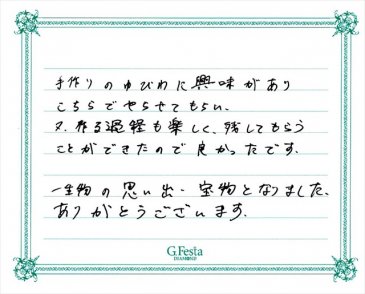 手作りのゆびわに興味があり
こちらでやらせてもらい、
又、作る過経も楽しく、残してもらう
ことができたので良かったです。
一生物の思い出・宝物となりました、
ありがとうございます。
G.Festa
DIAMOND